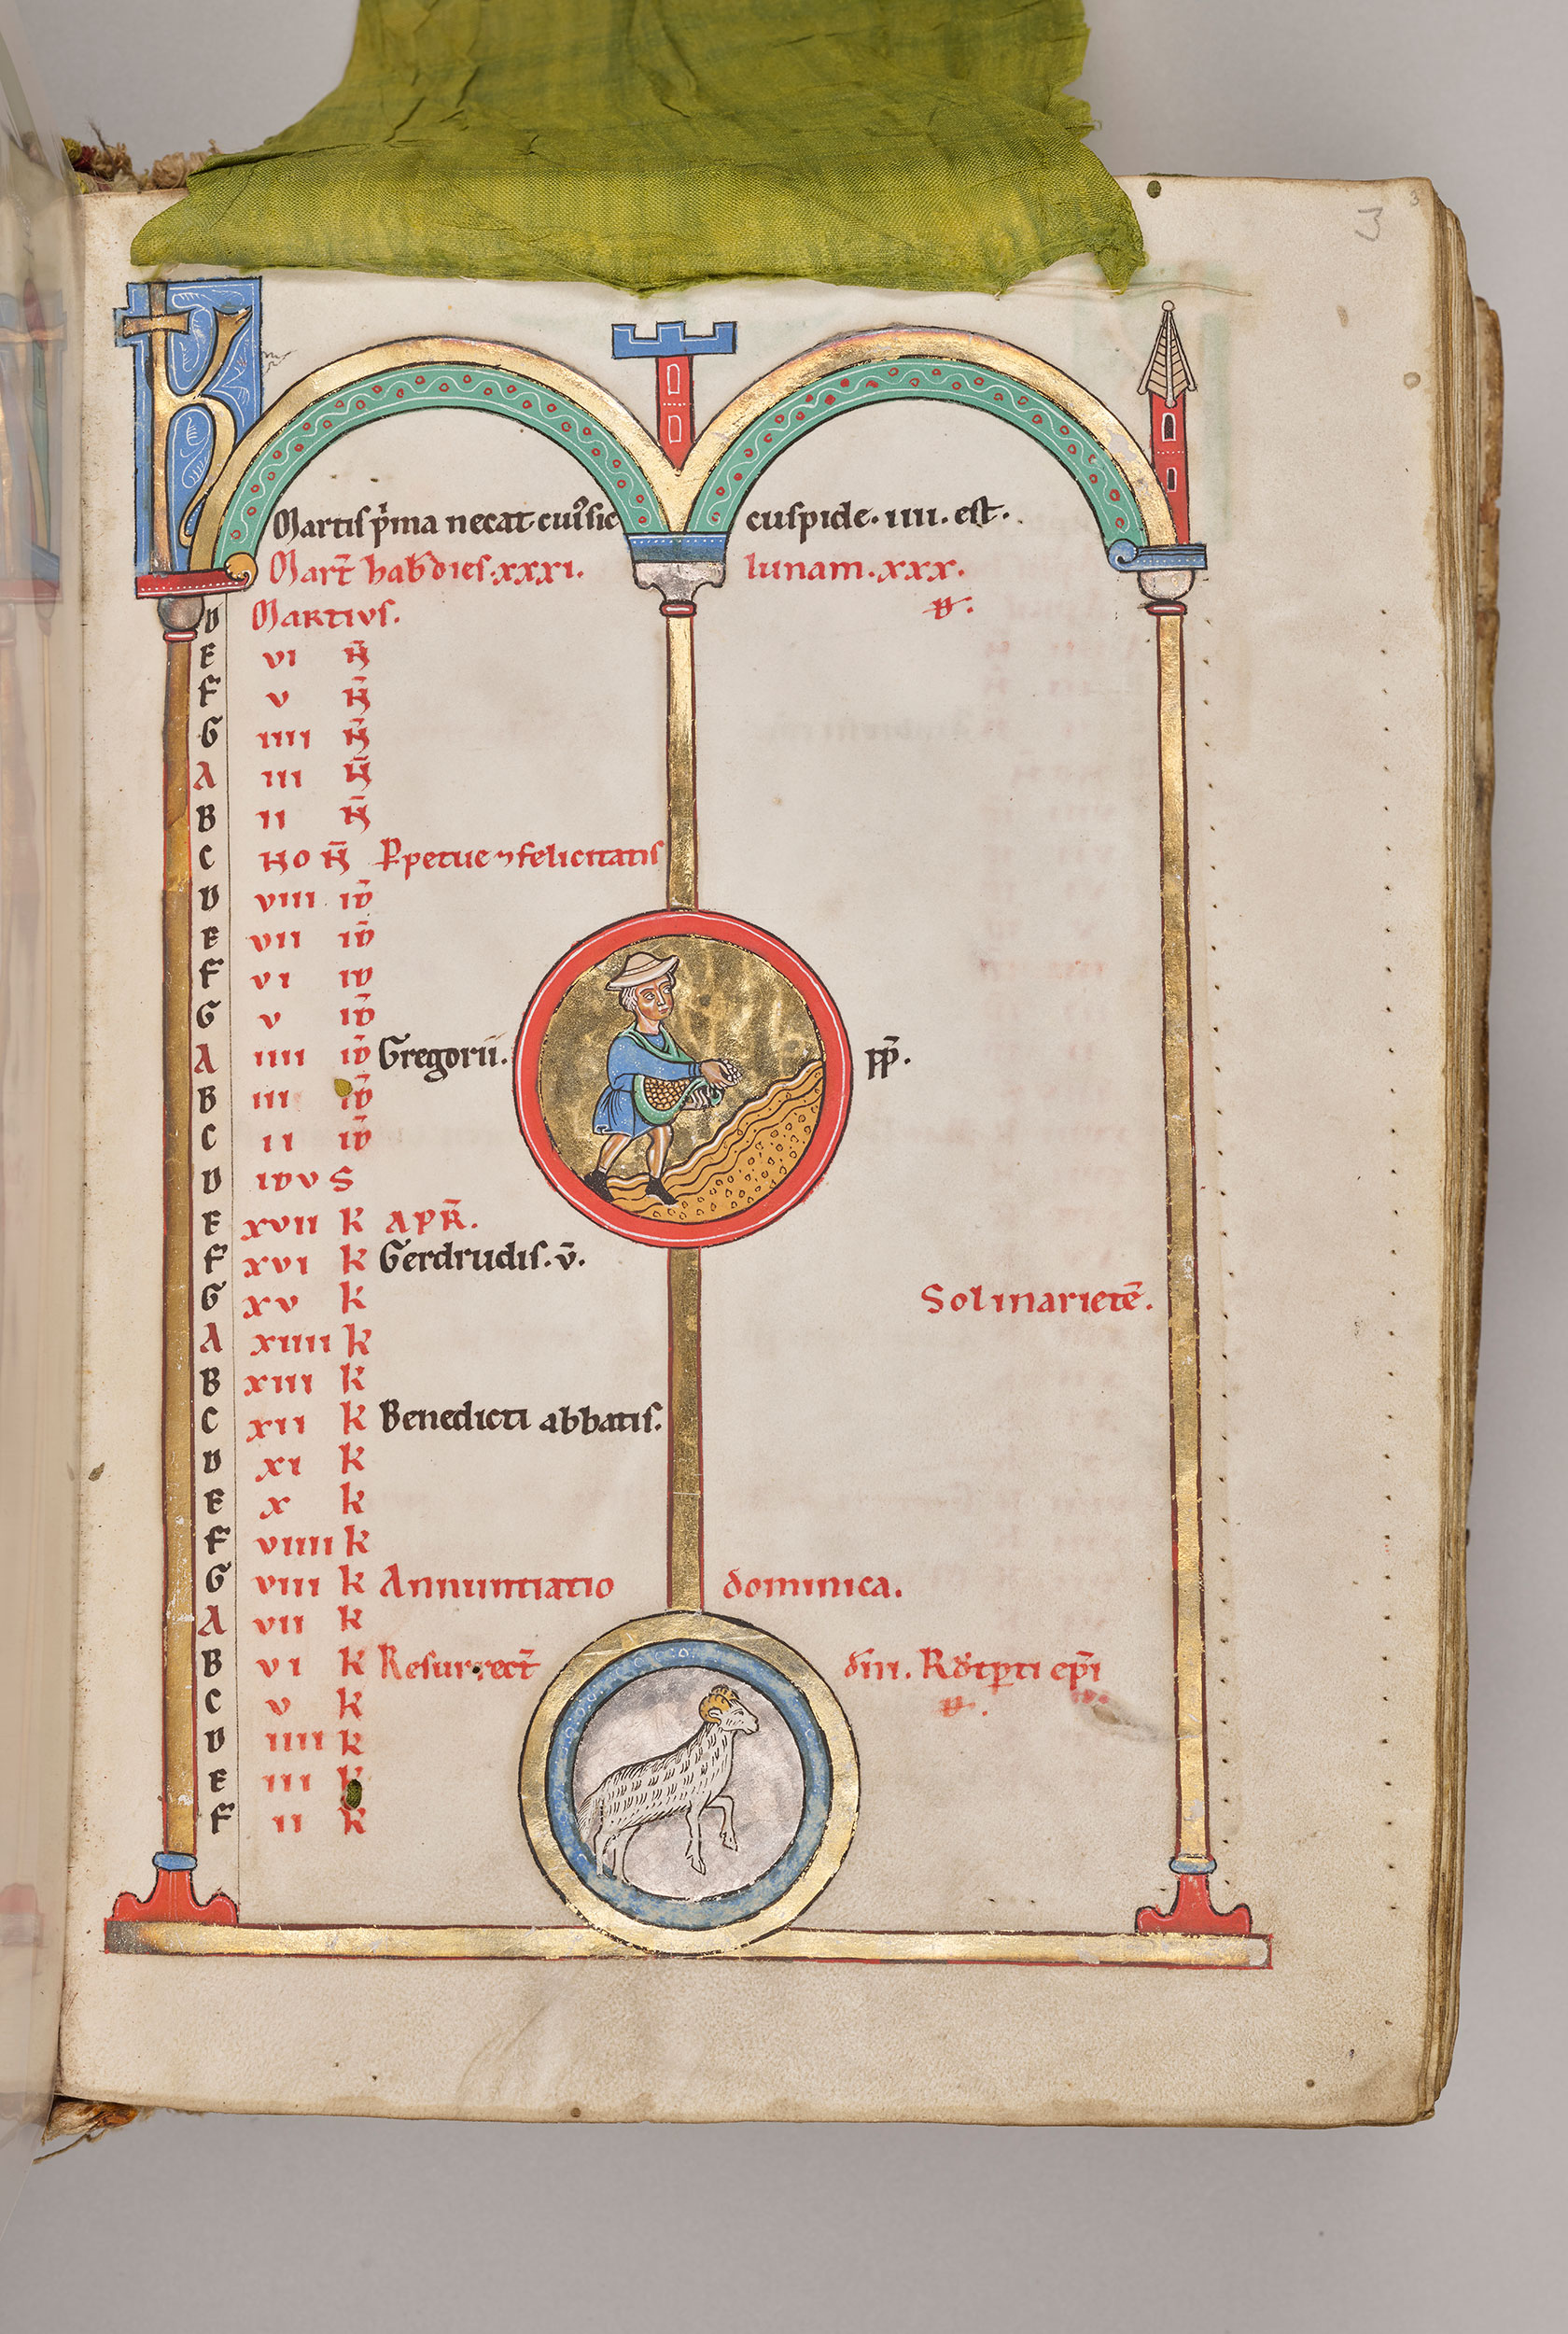 3
3
Martis p̾ma necat cui᷒ sic cuspide. iiii. est.
Mart̄ hab̄ dies. xxxi. lunam. xxx.
D Martivs.
E vi N̄
F v N̄
G iiii N̄
A iii N̄
B ii N̄
C No N̄ P̲petue ⁊ felicitatis
D viii id̄
E vii id̄
F vi id
G v id̄
A iiii id̄ Gregorii. pp̄.
B iii id̄
C ii id̄
D idus
E xvii k apr̄.
F xvi k Gerdrudis. v̄.
G xv k Sol in arietē.
A xiiii k
B xiii k
C xii k Benedicti abbatis.
D xi k
E x k
F viiii k
G viii k Annuntiatio dominica.
A vii k
B vi k Resurrect̄ dn̄i. epī
C v k
D iiii k
E iii k
F ii k